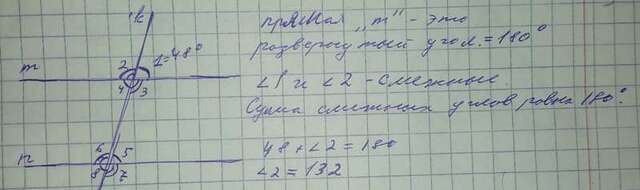 k
прямая "m" - это
развернутый угол. = 180°
2 1=48°
m
4 3
∠1 и ∠2 - смежные
Сумма смежных углов равна 180°.
6 5
48 + ∠2 = 180
n
8 7
∠2 = 132